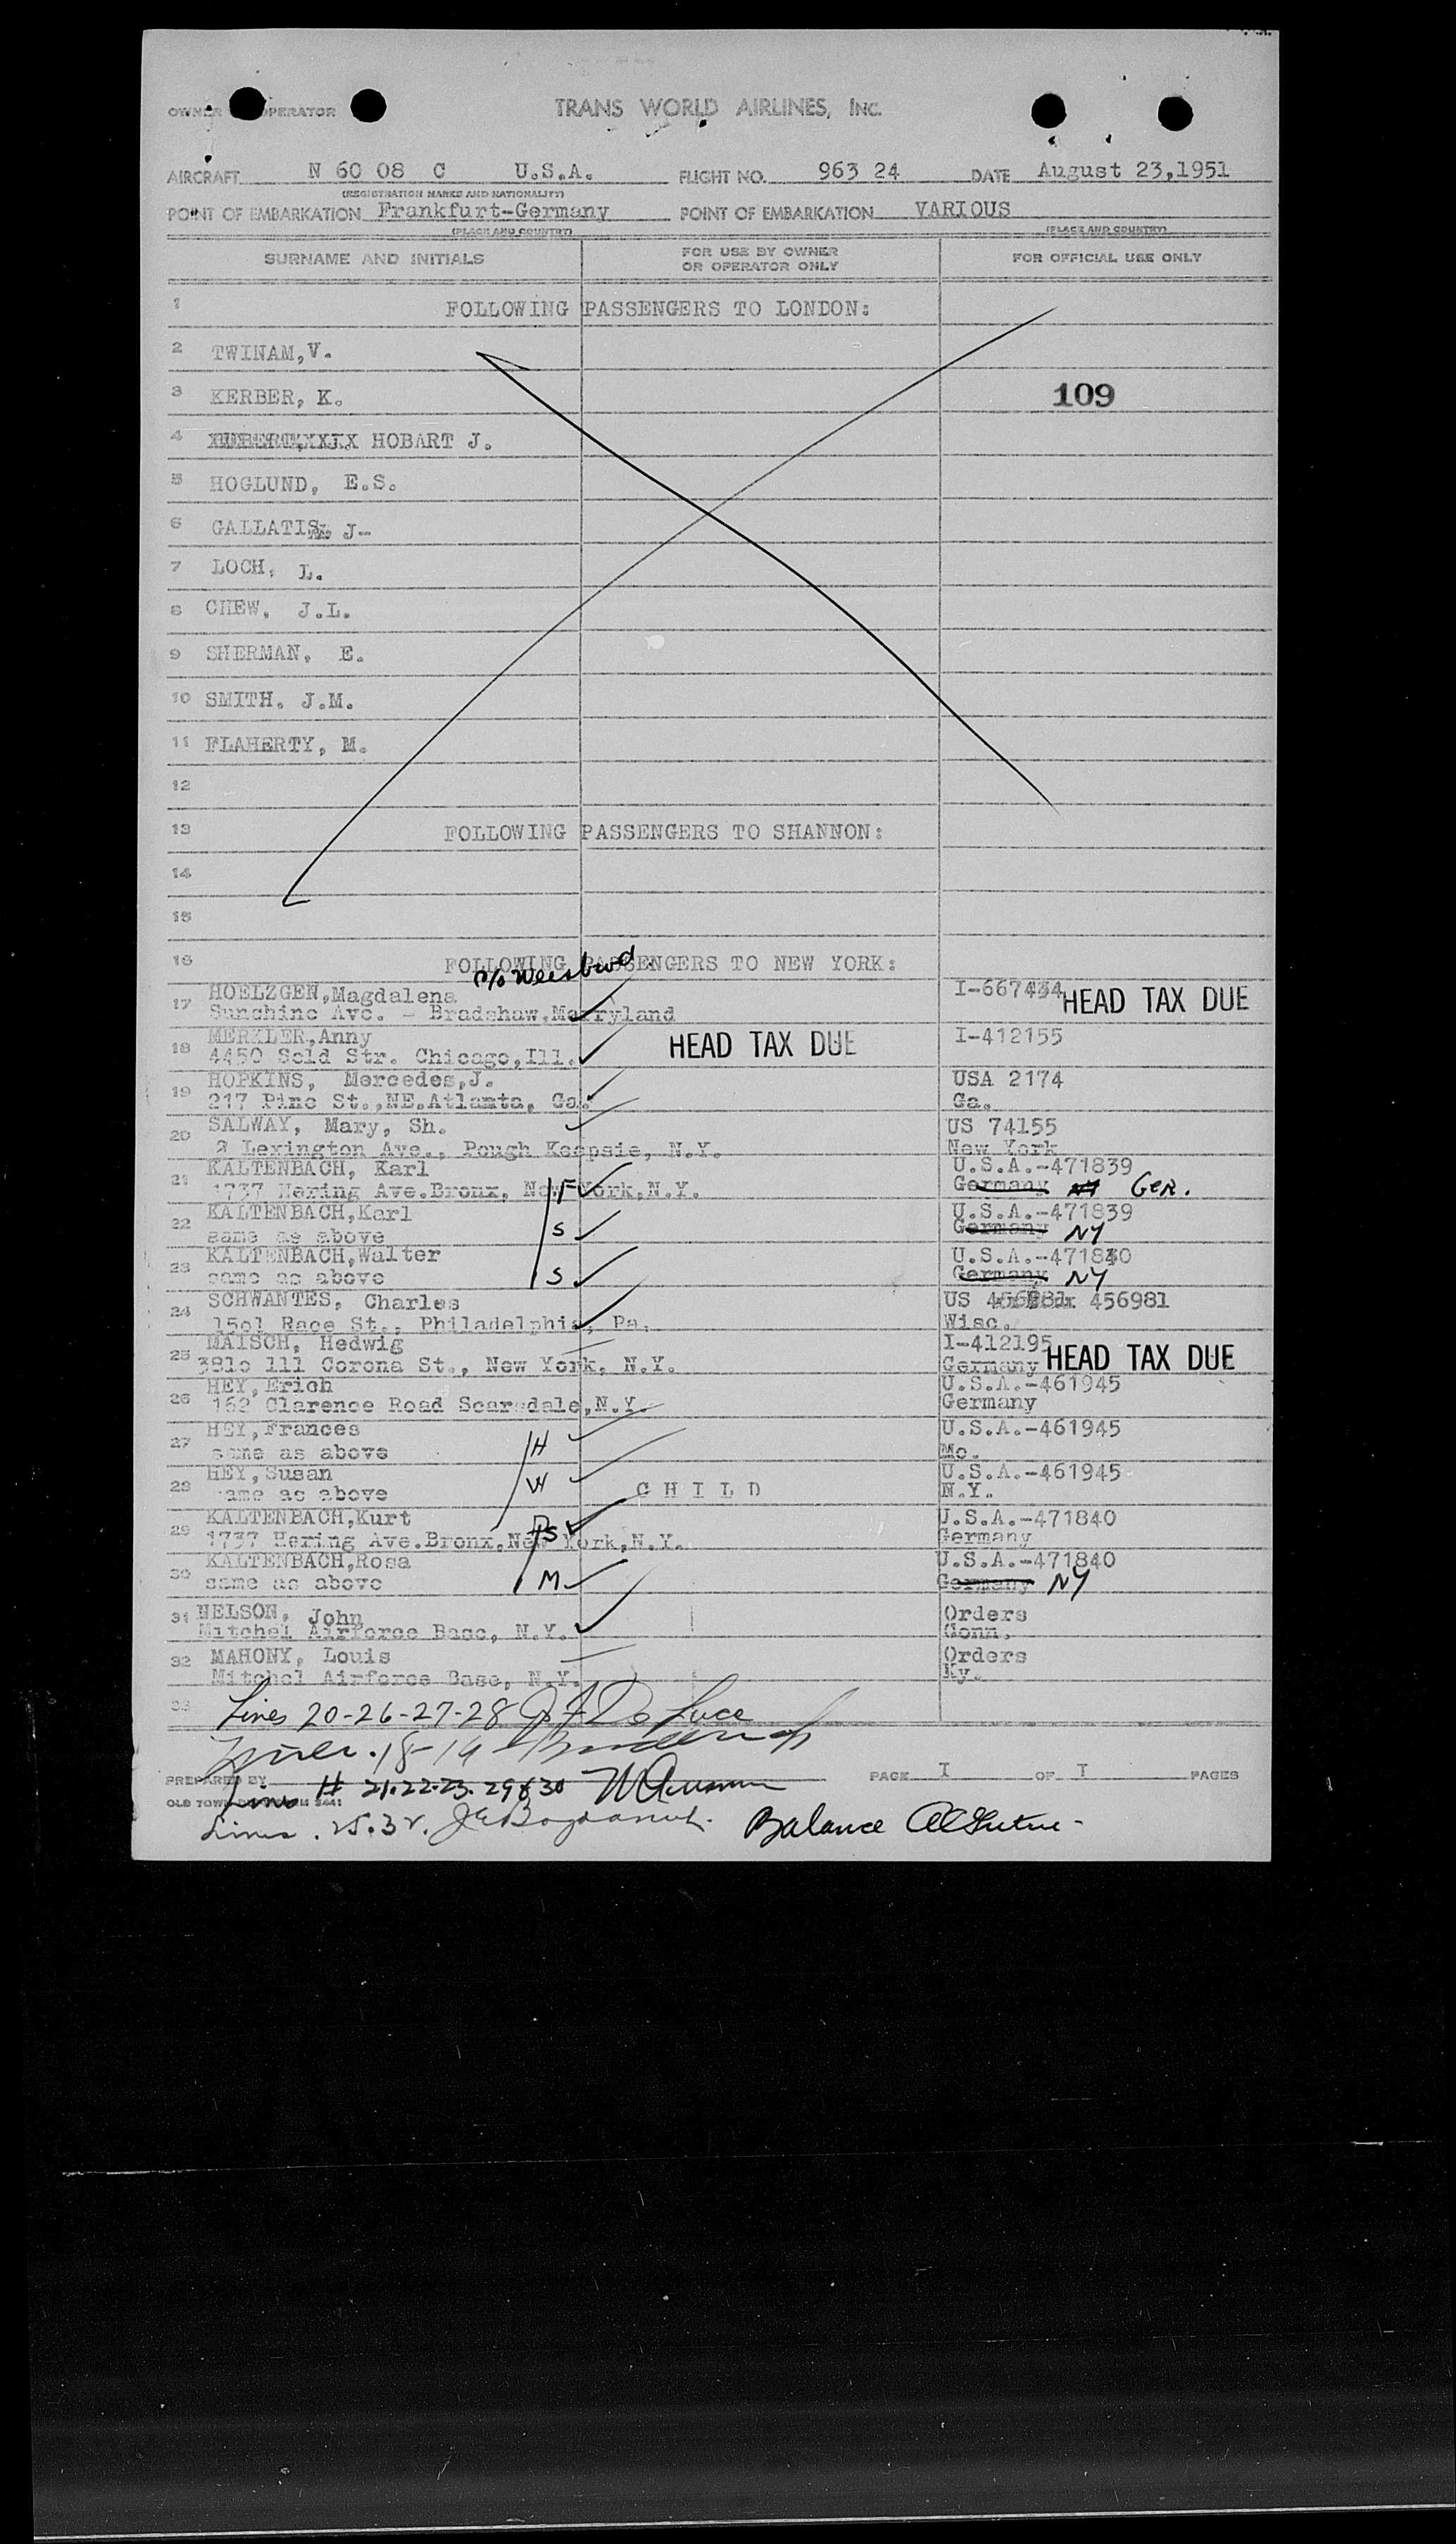 OWNER OPERATOR
TRANS WORLD AIRLINES, INC.
AIRCRAFT N 60 08 C U.S.A. FLIGHT NO. 963 24 DATE August 23,1951
(REGISTRATION MARKS AND NATIONALITY)
POINT OF EMBARKATION Frankfurt-Germany POINT OF EMBARKATION VARIOUS
(PLACE AND COUNTRY) (PLACE AND COUNTRY)
SURNAME AND INITIALS FOR USE BY OWNER OR OPERATOR ONLY FOR OFFICIAL USE ONLY
1 FOLLOWING PASSENGERS TO LONDON:
2 TWINAM,V.
3 KERBER, K. 109
4 HOBART J.
5 HOGLUND, E.S.
6 GALLATIS, J-
7 LOCH, L.
8 CHEW, J.L.
9 SHERMAN, E.
10 SMITH, J.M.
11 FLAHERTY, M.
12
13 FOLLOWING PASSENGERS TO SHANNON:
14
15
16 FOLLOWING PASSENGERS TO NEW YORK:
c/o
17 HOELZGEN,Magdalena I-667434 HEAD TAX DUE
Sunshine Ave. - Bradshaw,Marryland
18 MERKLER,Anny HEAD TAX DUE I-412155
4450 Sold Str. Chicago,Ill.
19 HOPKINS, Mercedes,J. USA 2174
217 Pine St.,NE.Atlamta, Ga. Ga.
20 SALWAY, Mary, Sh. US 74155
2 Lexington Ave., Pough Keepsie, N.Y. New York
21 KALTENBACH, Karl U.S.A.-471839
1737 Hering Ave.Bronx, New York,N.Y. F Germany NY Ger.
22 KALTENBACH,Karl U.S.A.-471839
same as above S Germany NY
23 KALTENBACH,Walter U.S.A.-471840
same as above S Germany NY
24 SCHWANTES, Charles US 456981
15o1 Race St., Philadelphia, Pa. Wisc.
25 MAISCH, Hedwig I-412195
381o 111 Corona St., New York, N.Y. Germany HEAD TAX DUE
26 HEY,Erich U.S.A.-461945
162 Clarence Road Scarsdale,N.Y. Germany
27 HEY,Frances U.S.A.-461945
same as above H Mo.
28 HEY,Susan U.S.A.-461945
same as above W CHILD N.Y.
29 KALTENBACH,Kurt U.S.A.-471840
1737 Hering Ave.Bronx,New York,N.Y. S Germany
30 KALTENBACH,Rosa U.S.A.-471840
same as above M Germany NY
31 NELSON, John Orders
Mitchel Airforce Base, N.Y. Conn.
32 MAHONY, Louis Orders
Mitchel Airforce Base, N.Y. Ky.
33 Lines 20-26-27-28 J F De Luce
Lines 18-19
PREPARED BY Lines # 21.22.23.29&30 PAGE I OF I PAGES
OLD TOWN
Lines 25.32. Balance